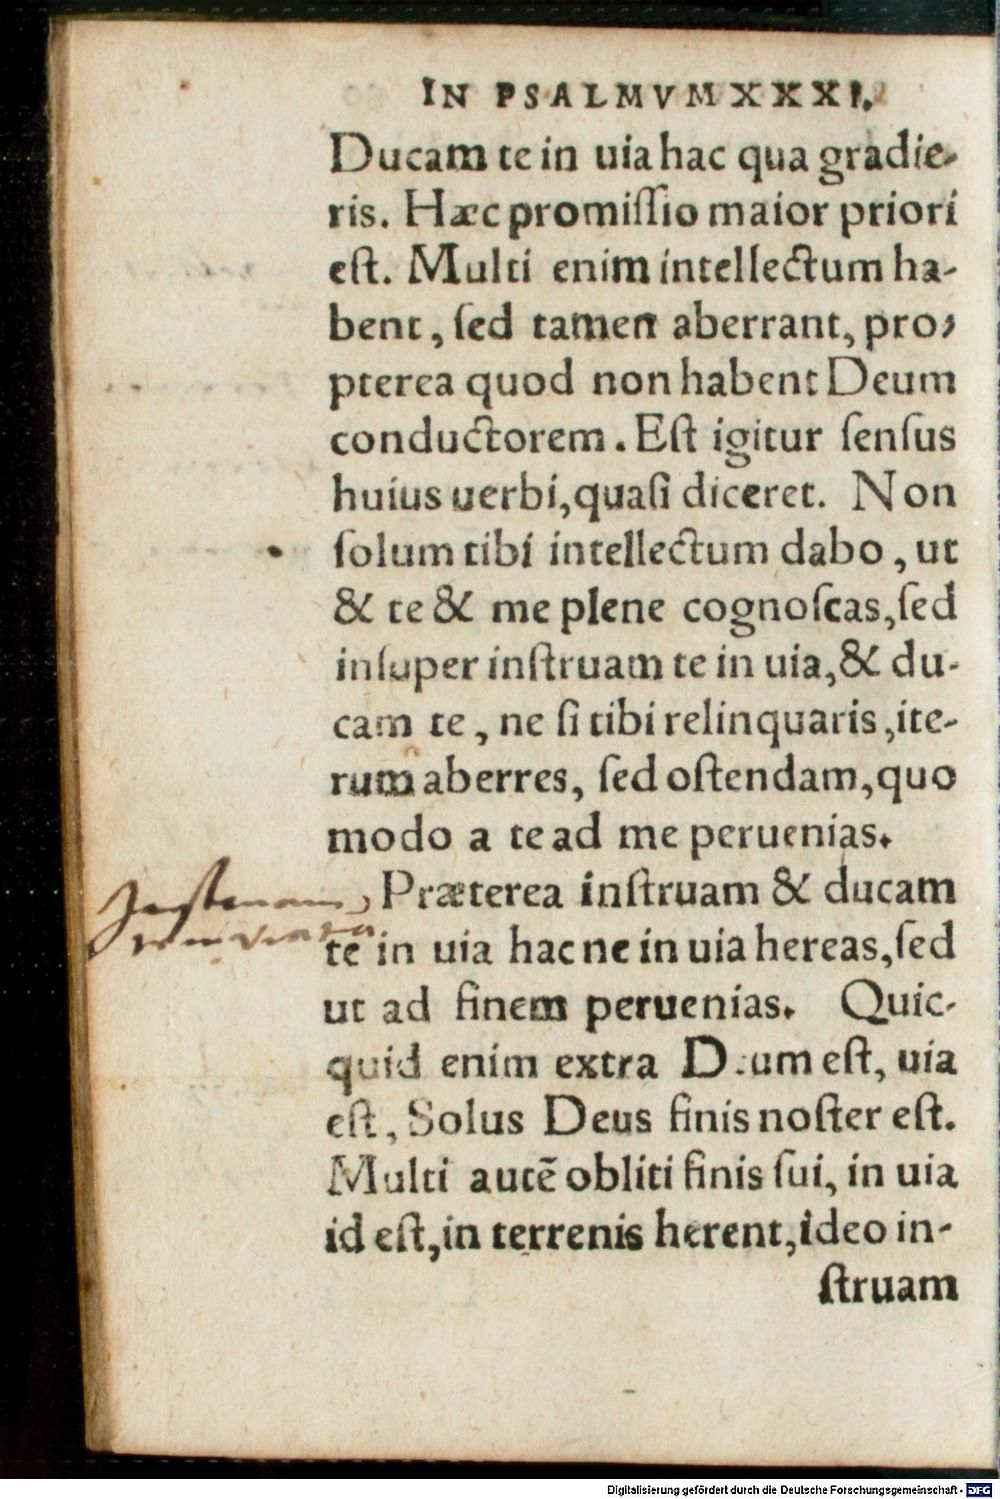 IN PSALMVM XXXI.
Ducam te in uia hac qua gradie-
ris. Hæc promiſſio maior priori
eſt. Multi enim intellectum ha-
bent, ſed tamen aberrant, pro-
pterea quod non habent Deum
conductorem. Eſt igitur ſenſus
huius uerbi, quaſi diceret. Non
ſolum tibi intellectum dabo, ut
& te & me plene cognoſcas, ſed
inſuper inſtruam te in uia, & du-
cam te, ne ſi tibi relinquaris, ite-
rum aberres, ſed oſtendam, quo
modo a te ad me peruenias.
Præterea inſtruam & ducam
te in uia hac ne in uia hereas, ſed
ut ad finem peruenias. Quic-
quid enim extra Deum eſt, uia
eſt, Solus Deus finis noſter eſt.
Multi autē obliti finis ſui, in uia
id eſt, in terrenis herent, ideo in-
ſtruam
Digitalisierung gefördert durch die Deutsche Forschungsgemeinschaft - DFG